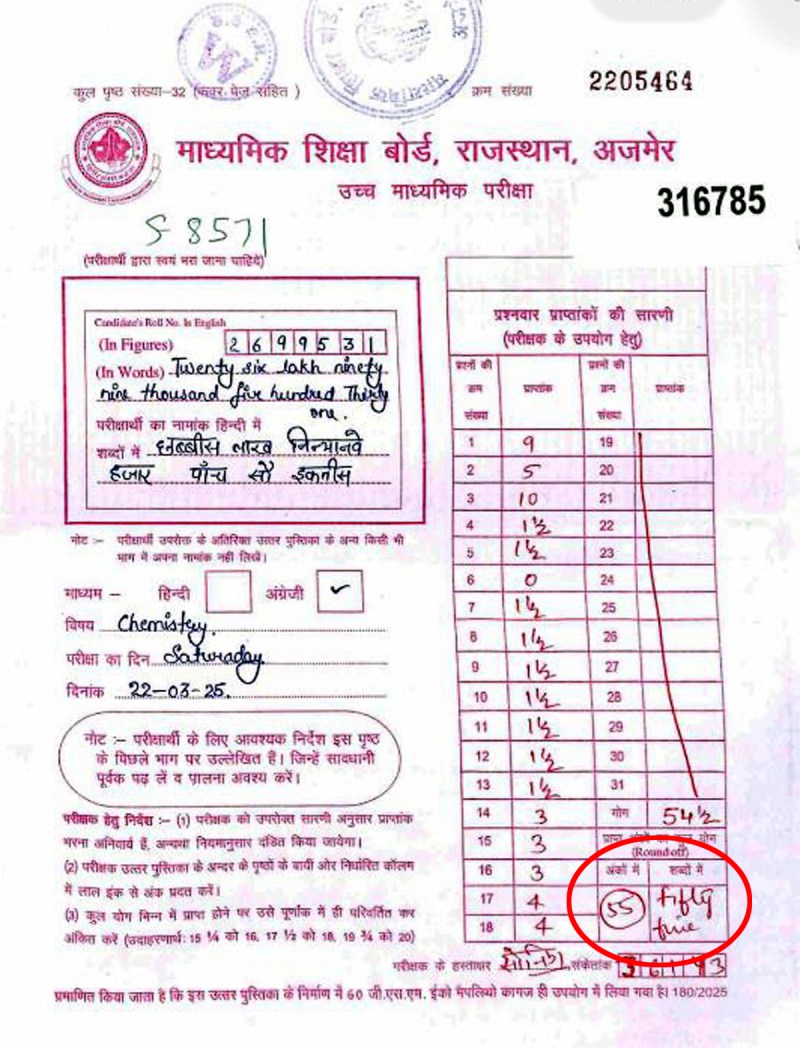 कुल पृष्ठ संख्या-32 (कवर पेज सहित)
क्रम संख्या
2205464
माध्यमिक शिक्षा बोर्ड, राजस्थान, अजमेर
उच्च माध्यमिक परीक्षा
316785
S 8571
(परीक्षार्थी द्वारा स्वयं भरा जाना चाहिये)
Candidate's Roll No. In English
(In Figures) 2 6 9 9 5 3 1
(In Words) Twenty six lakh ninety
nine thousand five hundred Thirty
one.
परीक्षार्थी का नामांक हिन्दी में
शब्दों में छब्बीस लाख निन्यानवे
हजार पाँच सौ इकतीस
नोट :- परीक्षार्थी उपरोक्त के अतिरिक्त उत्तर पुस्तिका के अन्य किसी भी
भाग में अपना नामांक नहीं लिखें।
माध्यम – हिन्दी अंग्रेजी ✓
विषय Chemistry.
परीक्षा का दिन Saturaday.
दिनांक 22-03-25.
नोट :– परीक्षार्थी के लिए आवश्यक निर्देश इस पृष्ठ
के पिछले भाग पर उल्लेखित हैं। जिन्हें सावधानी
पूर्वक पढ़ लें व पालना अवश्य करें।
परीक्षक हेतु निर्देश :– (1) परीक्षक को उपरोक्त सारणी अनुसार प्राप्तांक
भरना अनिवार्य हैं, अन्यथा नियमानुसार दंडित किया जायेगा।
(2) परीक्षक उत्तर पुस्तिका के अन्दर के पृष्ठों के बायीं ओर निर्धारित कॉलम
में लाल इंक से अंक प्रदत करें।
(3) कुल योग भिन्न में प्राप्त होने पर उसे पूर्णांक में ही परिवर्तित कर
अंकित करें (उदाहरणार्थ: 15 ¼ को 16, 17 ½ को 18, 19 ¾ को 20)
प्रश्नवार प्राप्तांकों की सारणी
(परीक्षक के उपयोग हेतु)
प्रश्नों की प्रश्नों की
क्रम प्राप्तांक क्रम प्राप्तांक
संख्या संख्या
1 9 19
2 5 20
3 10 21
4 1½ 22
5 1½ 23
6 0 24
7 1½ 25
8 1½ 26
9 1½ 27
10 1½ 28
11 1½ 29
12 1½ 30
13 1½ 31
14 3 योग 54½
15 3 प्राप्त अंकों का कुल योग
(Round off)
16 3 अंकों में शब्दों में
17 4 55 fifty
18 4 five
परीक्षक के हस्ताक्षर संकेतांक
प्रमाणित किया जाता है कि इस उत्तर पुस्तिका के निर्माण में 60 जी.एस.एम. ईको मैपलिथो कागज ही उपयोग में लिया गया है। 180/2025